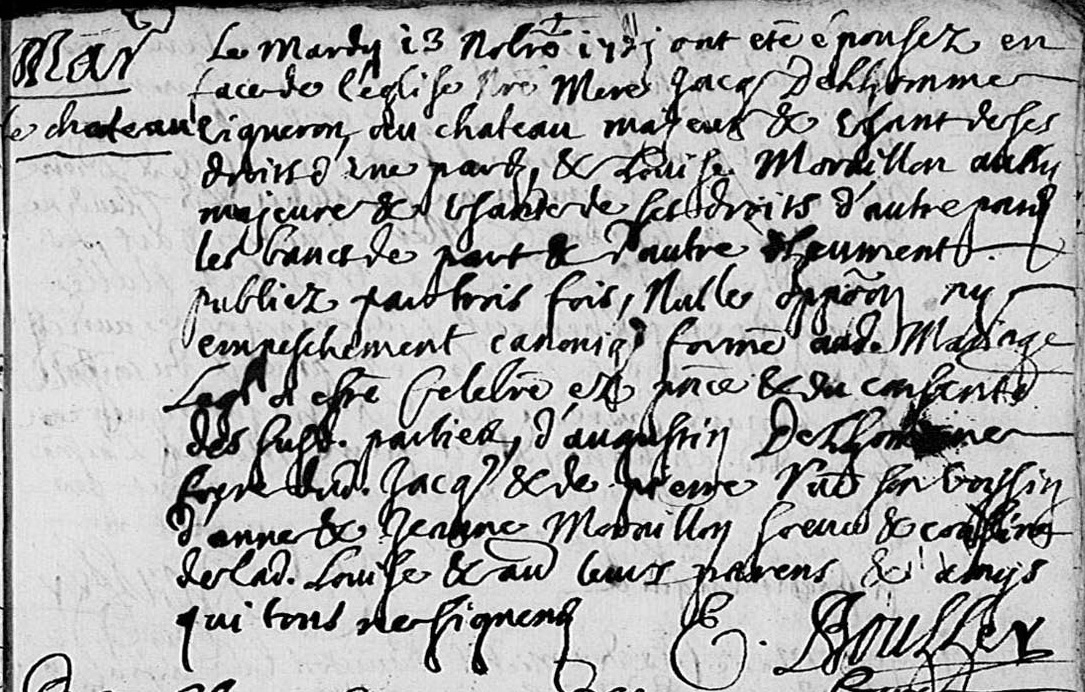 Mar
le chateau
Le Mardy 13 Nobre ont été épousez en
face de l'église Nre Mere Jacq Delhomme
vigneron, du chateau majeur & Usant de ses
droits d'une part, & Louise Morillon aussy
majeure & Usante de ses droits d'autre part
les bancs de part & d'autre deument
publiez par trois fois, Nulle opposon ny
empeschement canoniq formé aud. Mariage
Leql a esté Celebré en pnce & du consentt
des susd. parties, d'augustin Delhomme
frere dud. Jacq & de pierre son voisin
d'anne & Jeanne Morillon soeur & cousine
de lad. Louise & au leurs parens & amys
qui tous ne signent